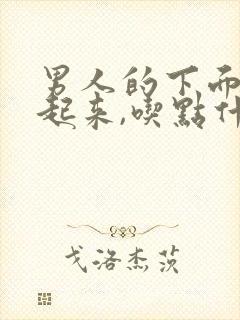 男人的下面
起来,喫點什
戈洛杰茨